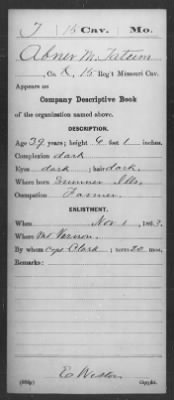 T | 15 Cav. | Mo.
Abner M. Tatum
, Co. , 15 Reg't Missouri Cav.
Appears on
Company Descriptive Book
of the organization named above.
DESCRIPTION.
Age 39 years; height 6 feet 1 inches.
Complexion dark
Eyes dark ; hair dark.
Where born Sumner Ills.
Occupation Farmer
ENLISTMENT.
When Nov 1 , 1863.
Where Mt Vernon.
By whom Cap Clark ; term 20 mos.
Remarks:
E Weston
Copyist.